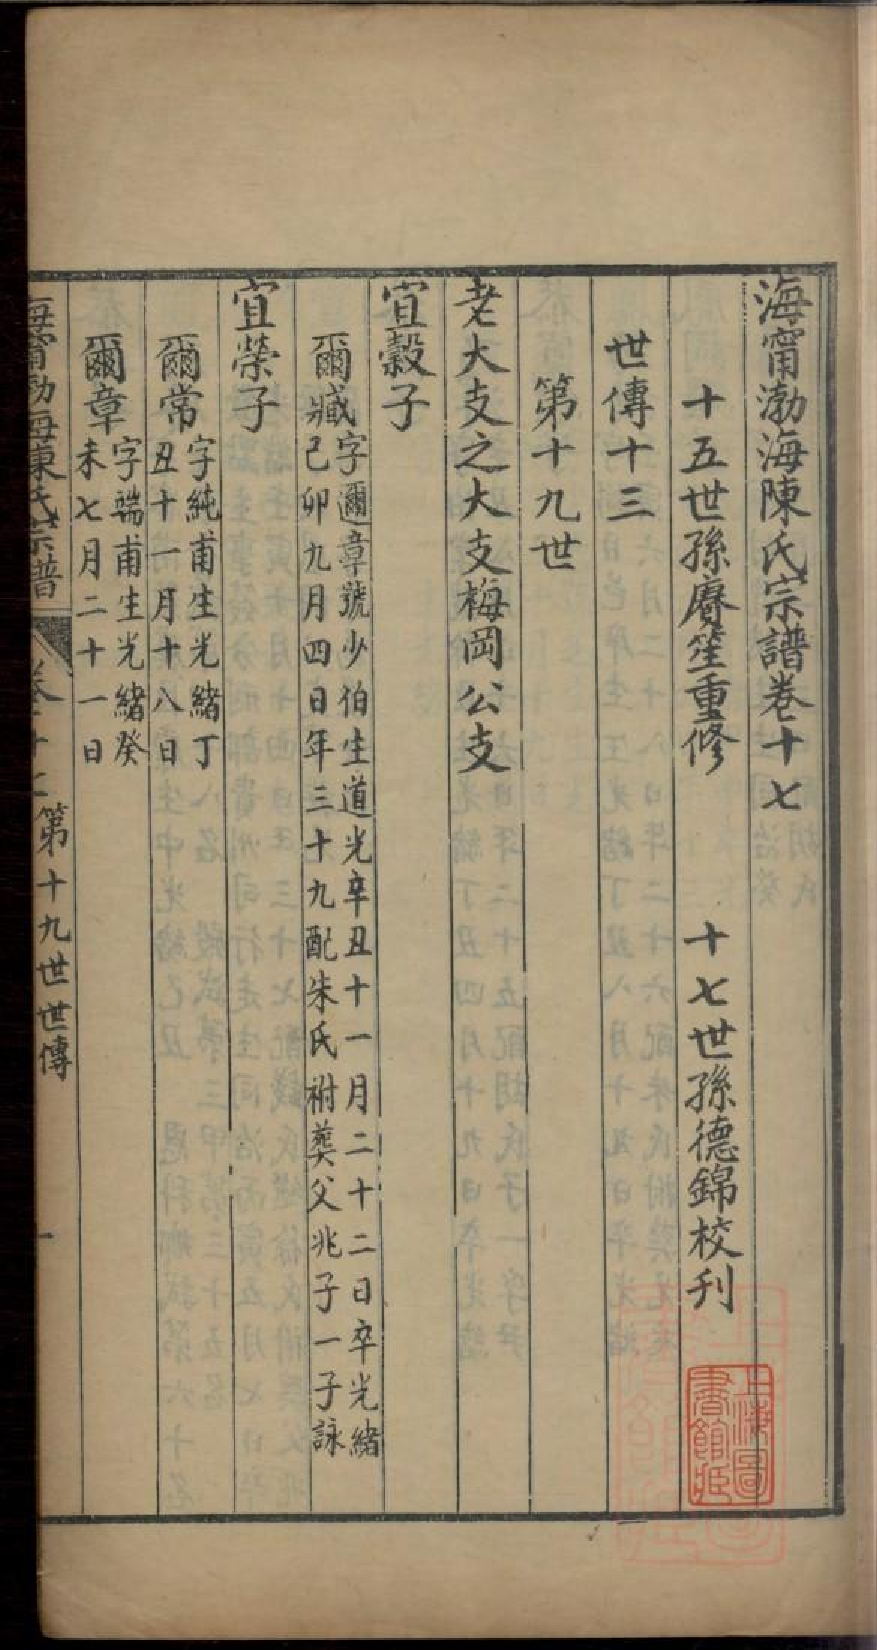 海甯渤海陳氏宗譜卷十七
十五世孫賡笙重修 十七世孫德錦校刋
世傳十三
第十九世
老大支之大支梅岡公支
宜穀子
爾臧字邇章號少伯生道光辛丑十一月二十二日卒光緒
己卯九月四日年三十九配朱氏祔葬父兆子一子詠
宜榮子
爾常字純甫生光緒丁
丑十一月十八日
爾章字端甫生光緒癸
未七月二十一日
海甯渤海陳氏宗譜 卷十七 第十九世世傳 一
上海圖書館藏